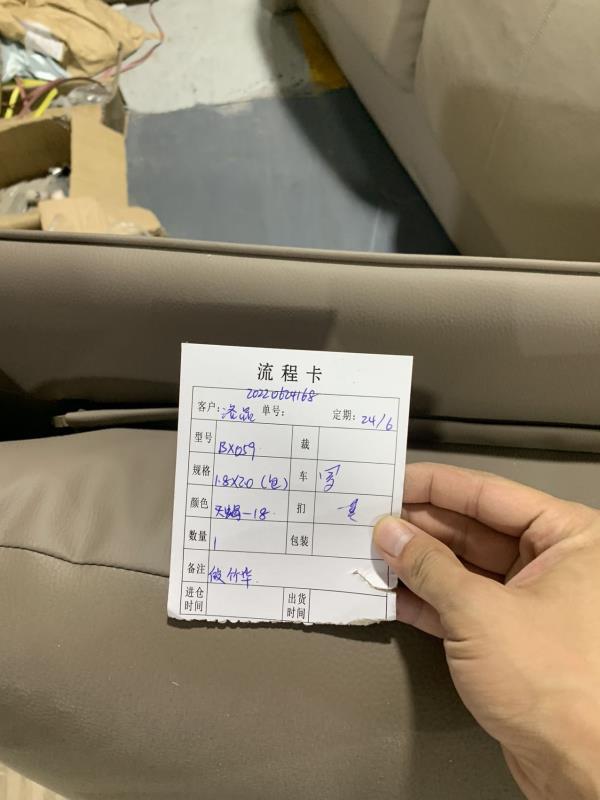 流程卡
20220624168
客户: 洛品 单号: 定期: 24/6
型号 BX059 裁
规格 1.8X2.0 (包) 车
颜色 -18 扪
数量 1 包装
备注 做竹华
进仓时间 出货时间